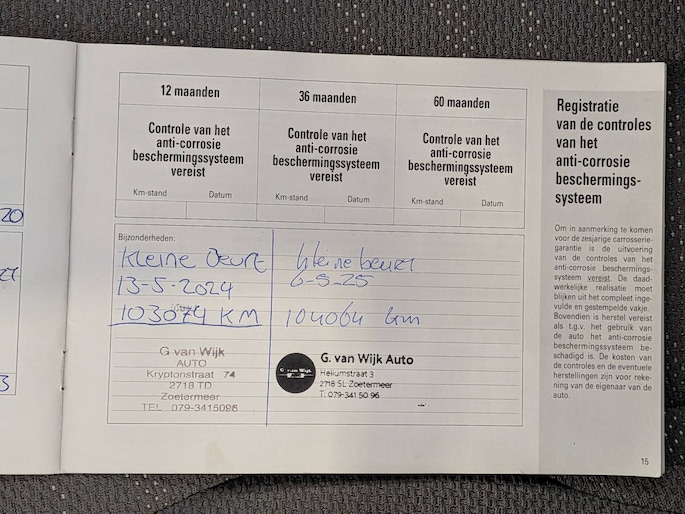 20
3
12 maanden
36 maanden
60 maanden
Controle van het
anti-corrosie
beschermingssysteem
vereist
Km-stand Datum
Controle van het
anti-corrosie
beschermingssysteem
vereist
Km-stand Datum
Controle van het
anti-corrosie
beschermingssysteem
vereist
Km-stand Datum
Bijzonderheden:
Kleine Beurt
13-5-2024
103074 KM
G van Wijk
AUTO
Kryptonstraat 74
2718 TD
Zoetermeer
TEL 079-3415096
kleine beurt
6-5-25
104064 km
G. van Wijk
G. van Wijk Auto
Heliumstraat 3
2718 SL Zoetermeer
T: 079-341 50 96
Registratie
van de controles
van het
anti-corrosie
beschermings-
systeem
Om in aanmerking te komen
voor de zesjarige carrosserie-
garantie is de uitvoering
van de controles van het
anti-corrosie beschermings-
systeem vereist. De daad-
werkelijke realisatie moet
blijken uit het compleet inge-
vulde en gestempelde vakje.
Bovendien is herstel vereist
als t.g.v. het gebruik van
de auto het anti-corrosie
beschermingssysteem be-
schadigd is. De kosten van
de controles en de eventuele
herstellingen zijn voor reke-
ning van de eigenaar van de
auto.
15